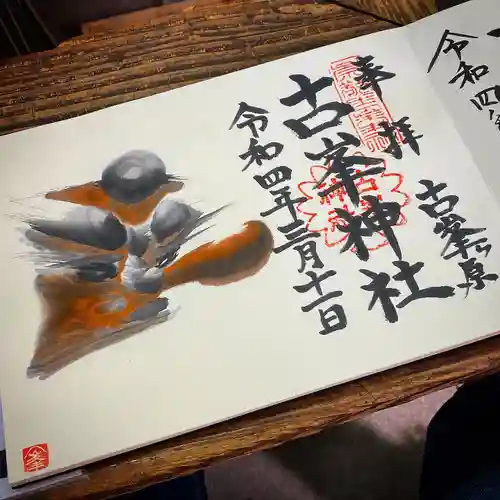 奉拝
古峯ヶ原
古峯神社
令和四年三月十一日
令和四年